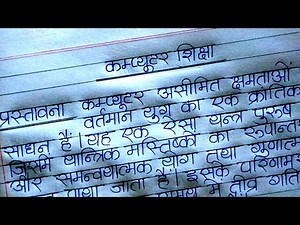 कम्प्यूटर शिक्षा
प्रस्तावना कम्प्यूटर असीमित क्षमताओं
वर्तमान युग का एक क्रांतिक
साधन है। यह एक ऐसा यन्त्र पुरुष
जिसमें यान्त्रिक मस्तिष्कों का रूपान्त
और समन्वयात्मक योग तथा गुणात्म
पाया जाता है। इसके परिणाम
में तीव्र गति